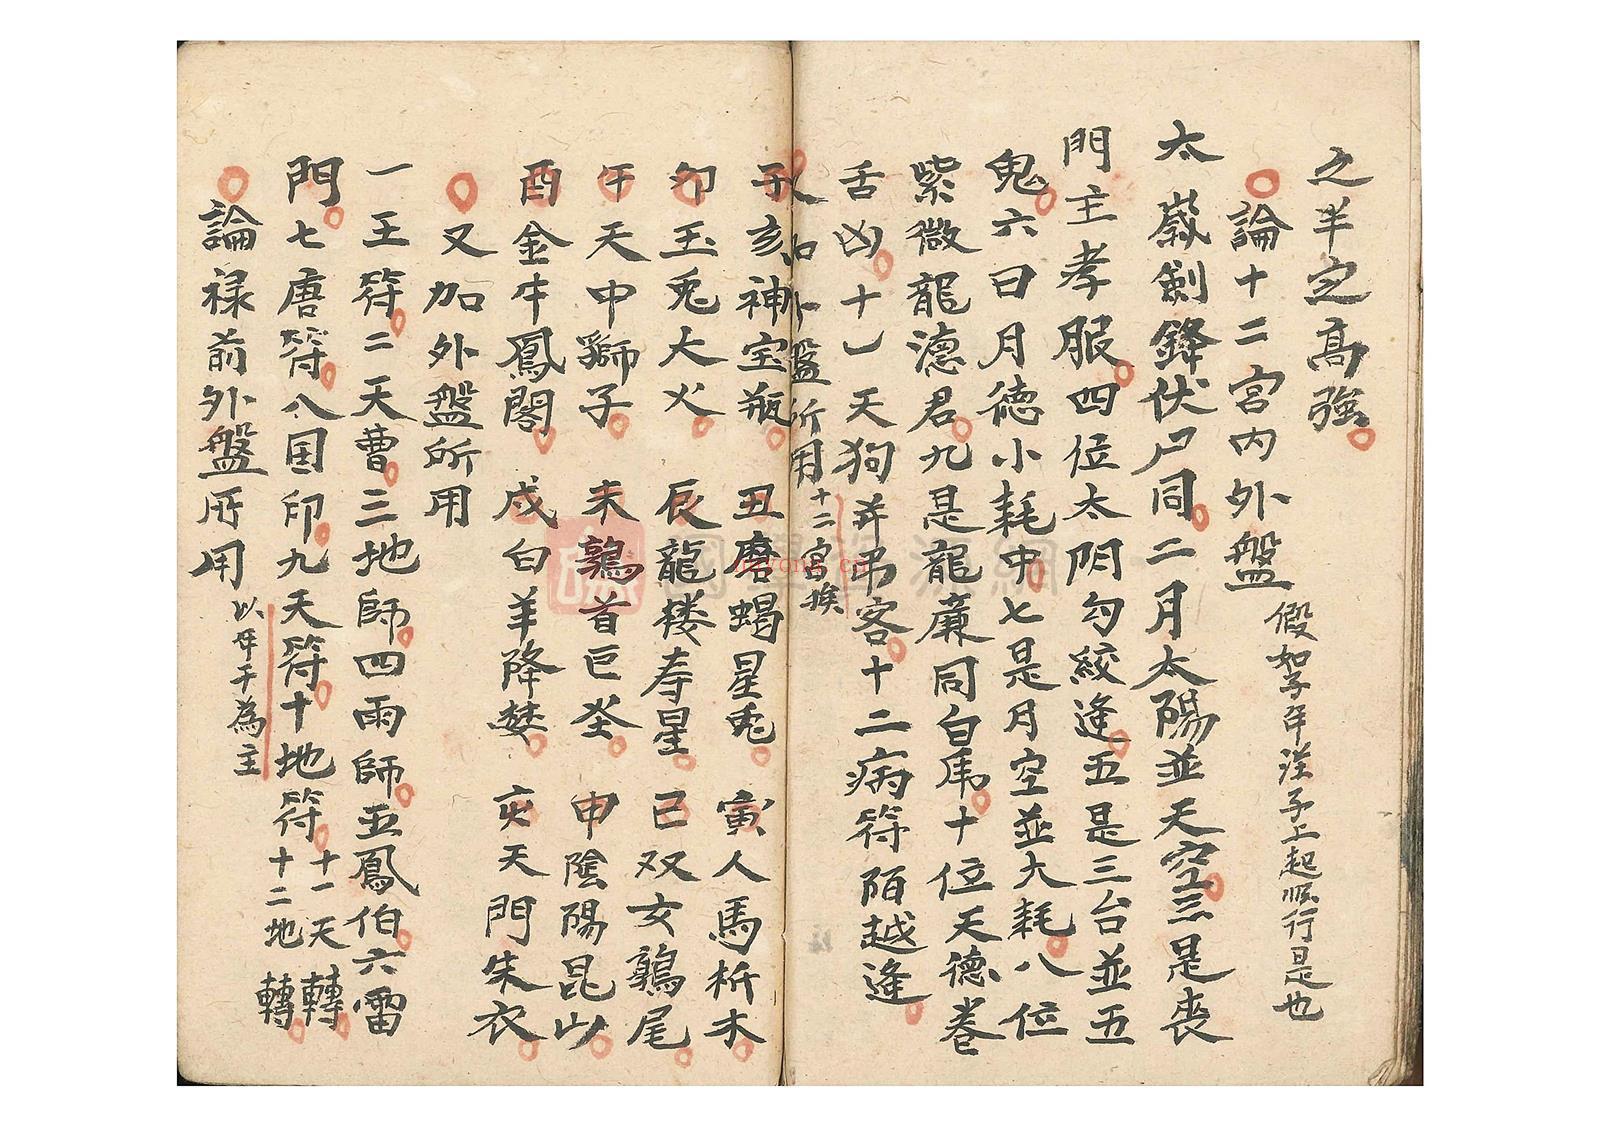 之半定高強
論十二宮内外盤 假如子年從子上起順行是也
太歲劍鋒伏尸同二月太陽並天空三是喪
門主孝服四位太陰勾絞逢五是三台並五
鬼六曰月德小耗中七是月空並大耗八位
紫微龍德君九是龍廉同白虎十位天德卷
舌凶十一天狗并吊客十二病符陌越逢
又加外盤所用 十二宮挨
子亥神宝瓶 丑磨蝎星兎 寅人馬析木
卯玉兎大火 辰龍楼寿星 巳双女鶉尾
午天中獅子 未鶉首巨 申陰陽昆山
酉金牛鳳閣 戌白羊降婪 亥天門朱衣
又加外盤所用
一王符二天曹三地師四雨師五鳳伯六雷
門七唐符八国印九天符十地符 十一天轉 十二地轉
論禄前外盤所用 以年干為主
國學資源網